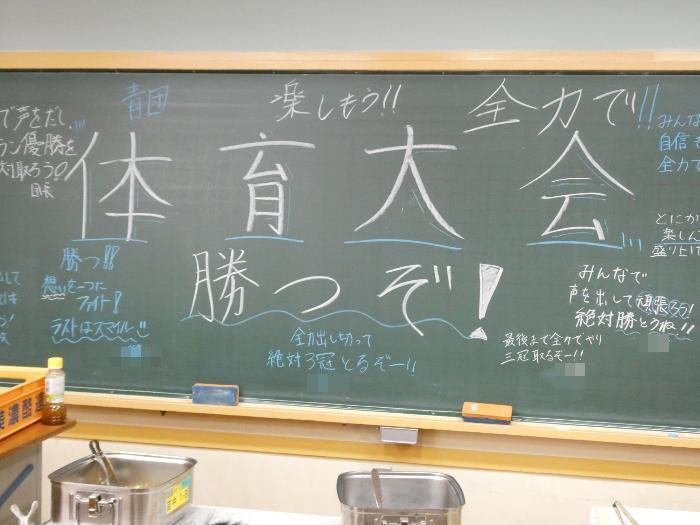 青団
楽しもう!!
全力で!!
で声をだし
優勝を
取ろう!
団長
体育大会
勝つぞ!
勝つ!!
想いを一つに
ファイト!
ラストはスマイル
全力出し切って
絶対3冠とるぞー!!
最後まで全力でやり
三冠取るぞー!!
みんなで
声を出して頑張ろう!
絶対勝とうね!!
みんな
自信も
全力で
とにか
楽しん
盛り上げ